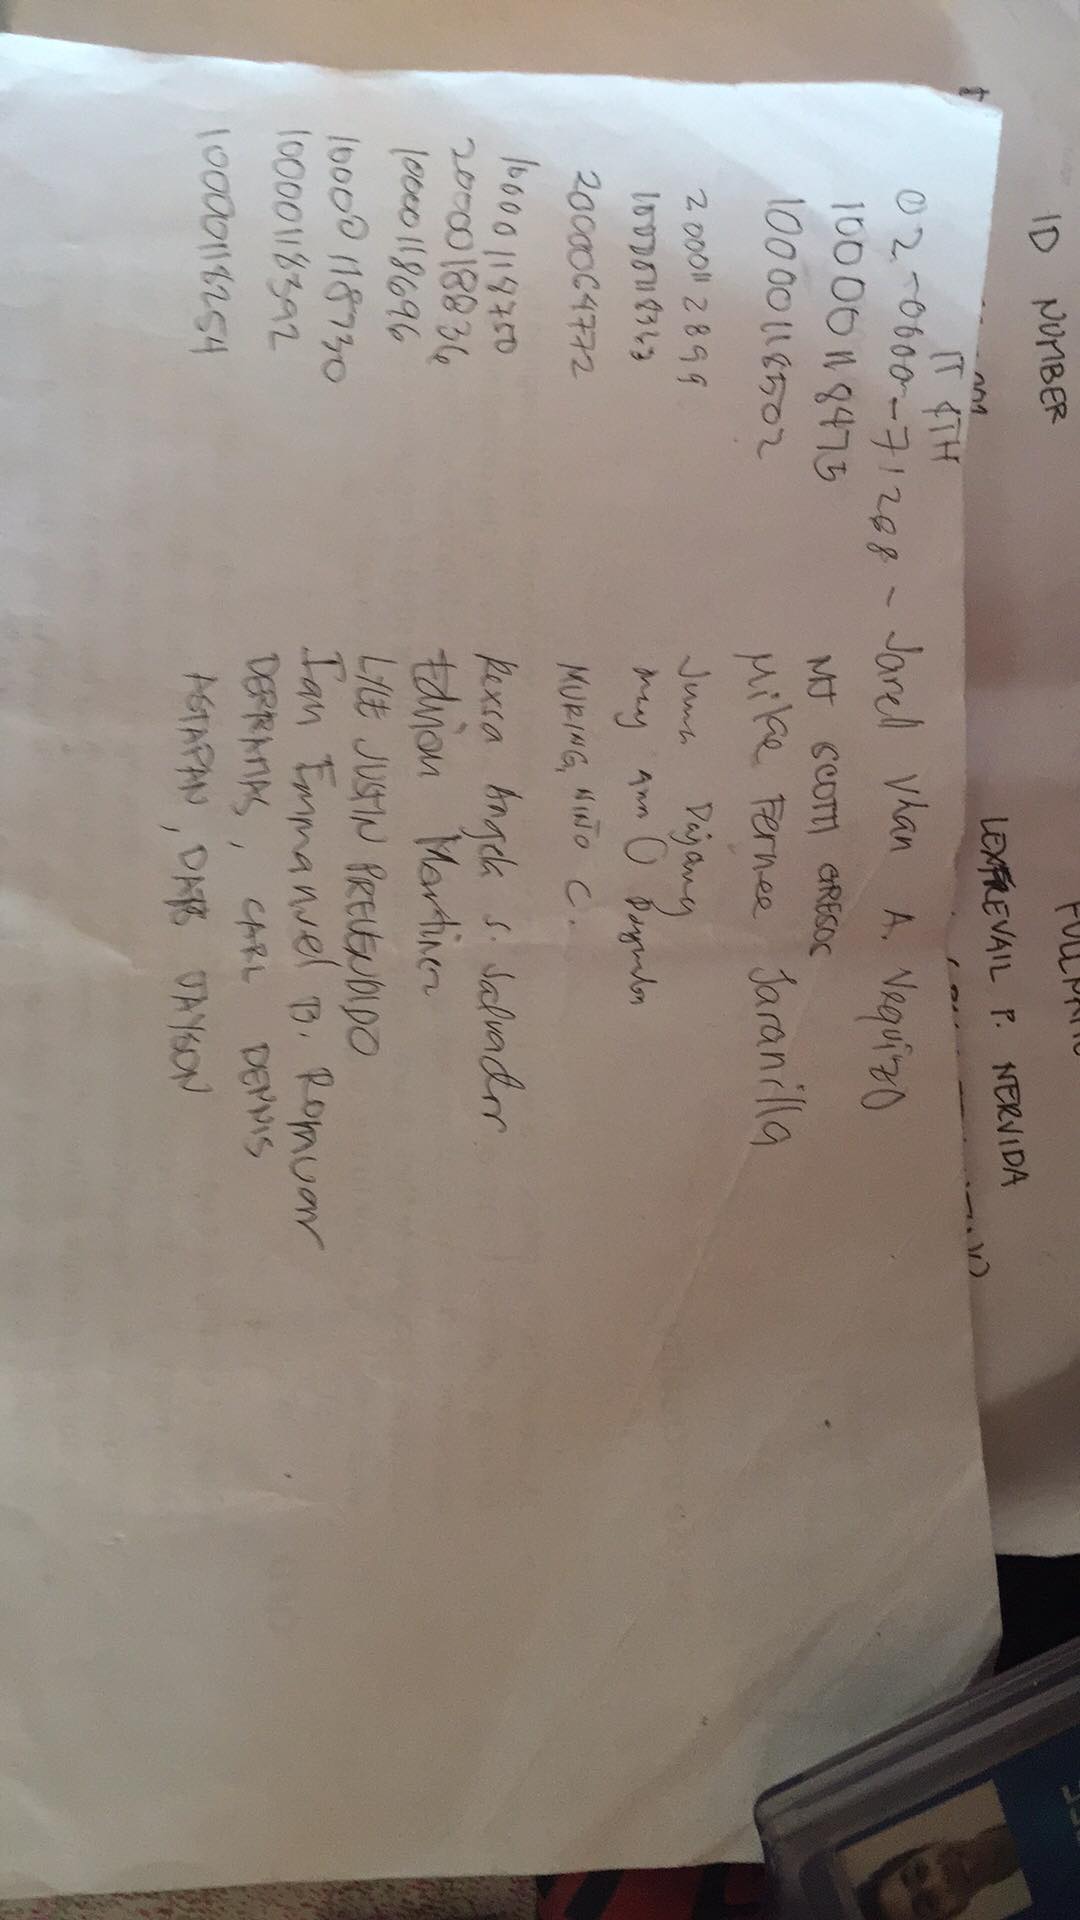 ID NUMBER FULLNAME
LEXFREVAIL P. NERVIDA
IT 4TH
02-0600-71268 - Jarell Vhan A. Vequizo
10000118475 MJ SCOTTI GRESOS
10000118502 Mike Fernee Jaranilla
2000112899 Juna Dajang
10000118363 May Ann O
2000064772 MURING, NIÑO C.
10000118750 Rexsa Angela S. Salvador
2000018836 Edrian Martinez
10000118696 LYLE JUSTIN PREVENDIDO
10000118730 Ian Emmanuel B. Romuar
10000118392 DERRAMAS, CARL DENNIS
10000118254 ASTAPAN, DAVE JAYSON